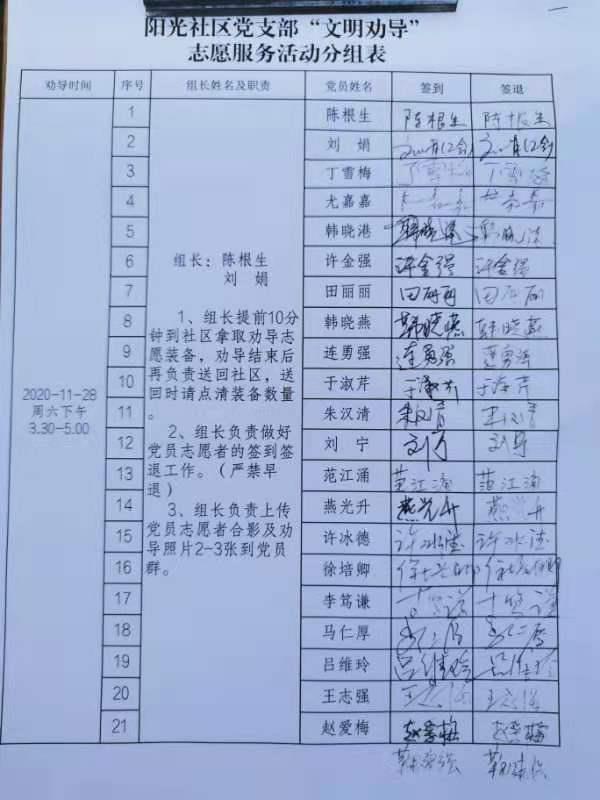 阳光社区党支部“文明劝导”
志愿服务活动分组表
劝导时间 序号 组长姓名及职责 党员姓名 签到 签退
2020-11-28
周六下午
3.30-5.00
组长：陈根生
刘 娟
1、组长提前10分
钟到社区拿取劝导志
愿装备，劝导结束后
再负责送回社区，送
回时请点清装备数量
。
2、组长负责做好
党员志愿者的签到签
退工作。（严禁早
退）
3、组长负责上传
党员志愿者合影及劝
导照片2-3张到党员
群。
1 陈根生 陈根生 陈根生
2 刘 娟
3 丁雪梅 丁雪梅 丁雪梅
4 尤嘉嘉
5 韩晓港 韩晓港 韩晓港
6 许金强 许金强 许金强
7 田丽丽 田丽丽 田丽丽
8 韩晓燕 韩晓燕 韩晓燕
9 连勇强 连勇强 连勇强
10 于淑芹 于淑芹 于淑芹
11 朱汉清 朱汉清
12 刘 宁 刘宁 刘宁
13 范江涌 范江涌 范江涌
14 燕光升 燕光升 燕光升
15 许冰德 许冰德 许冰德
16 徐培卿
17 李笃谦
18 马仁厚
19 吕维玲 吕维玲 吕维玲
20 王志强 王志强 王志强
21 赵爱梅 赵爱梅 赵爱梅